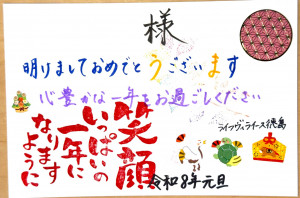 様
明けましておめでとうございます
心豊かな一年をお過ごしください
笑顔
いっぱいの
一年に
なります
ように
ライフヴェライース徳島
令和8年元旦